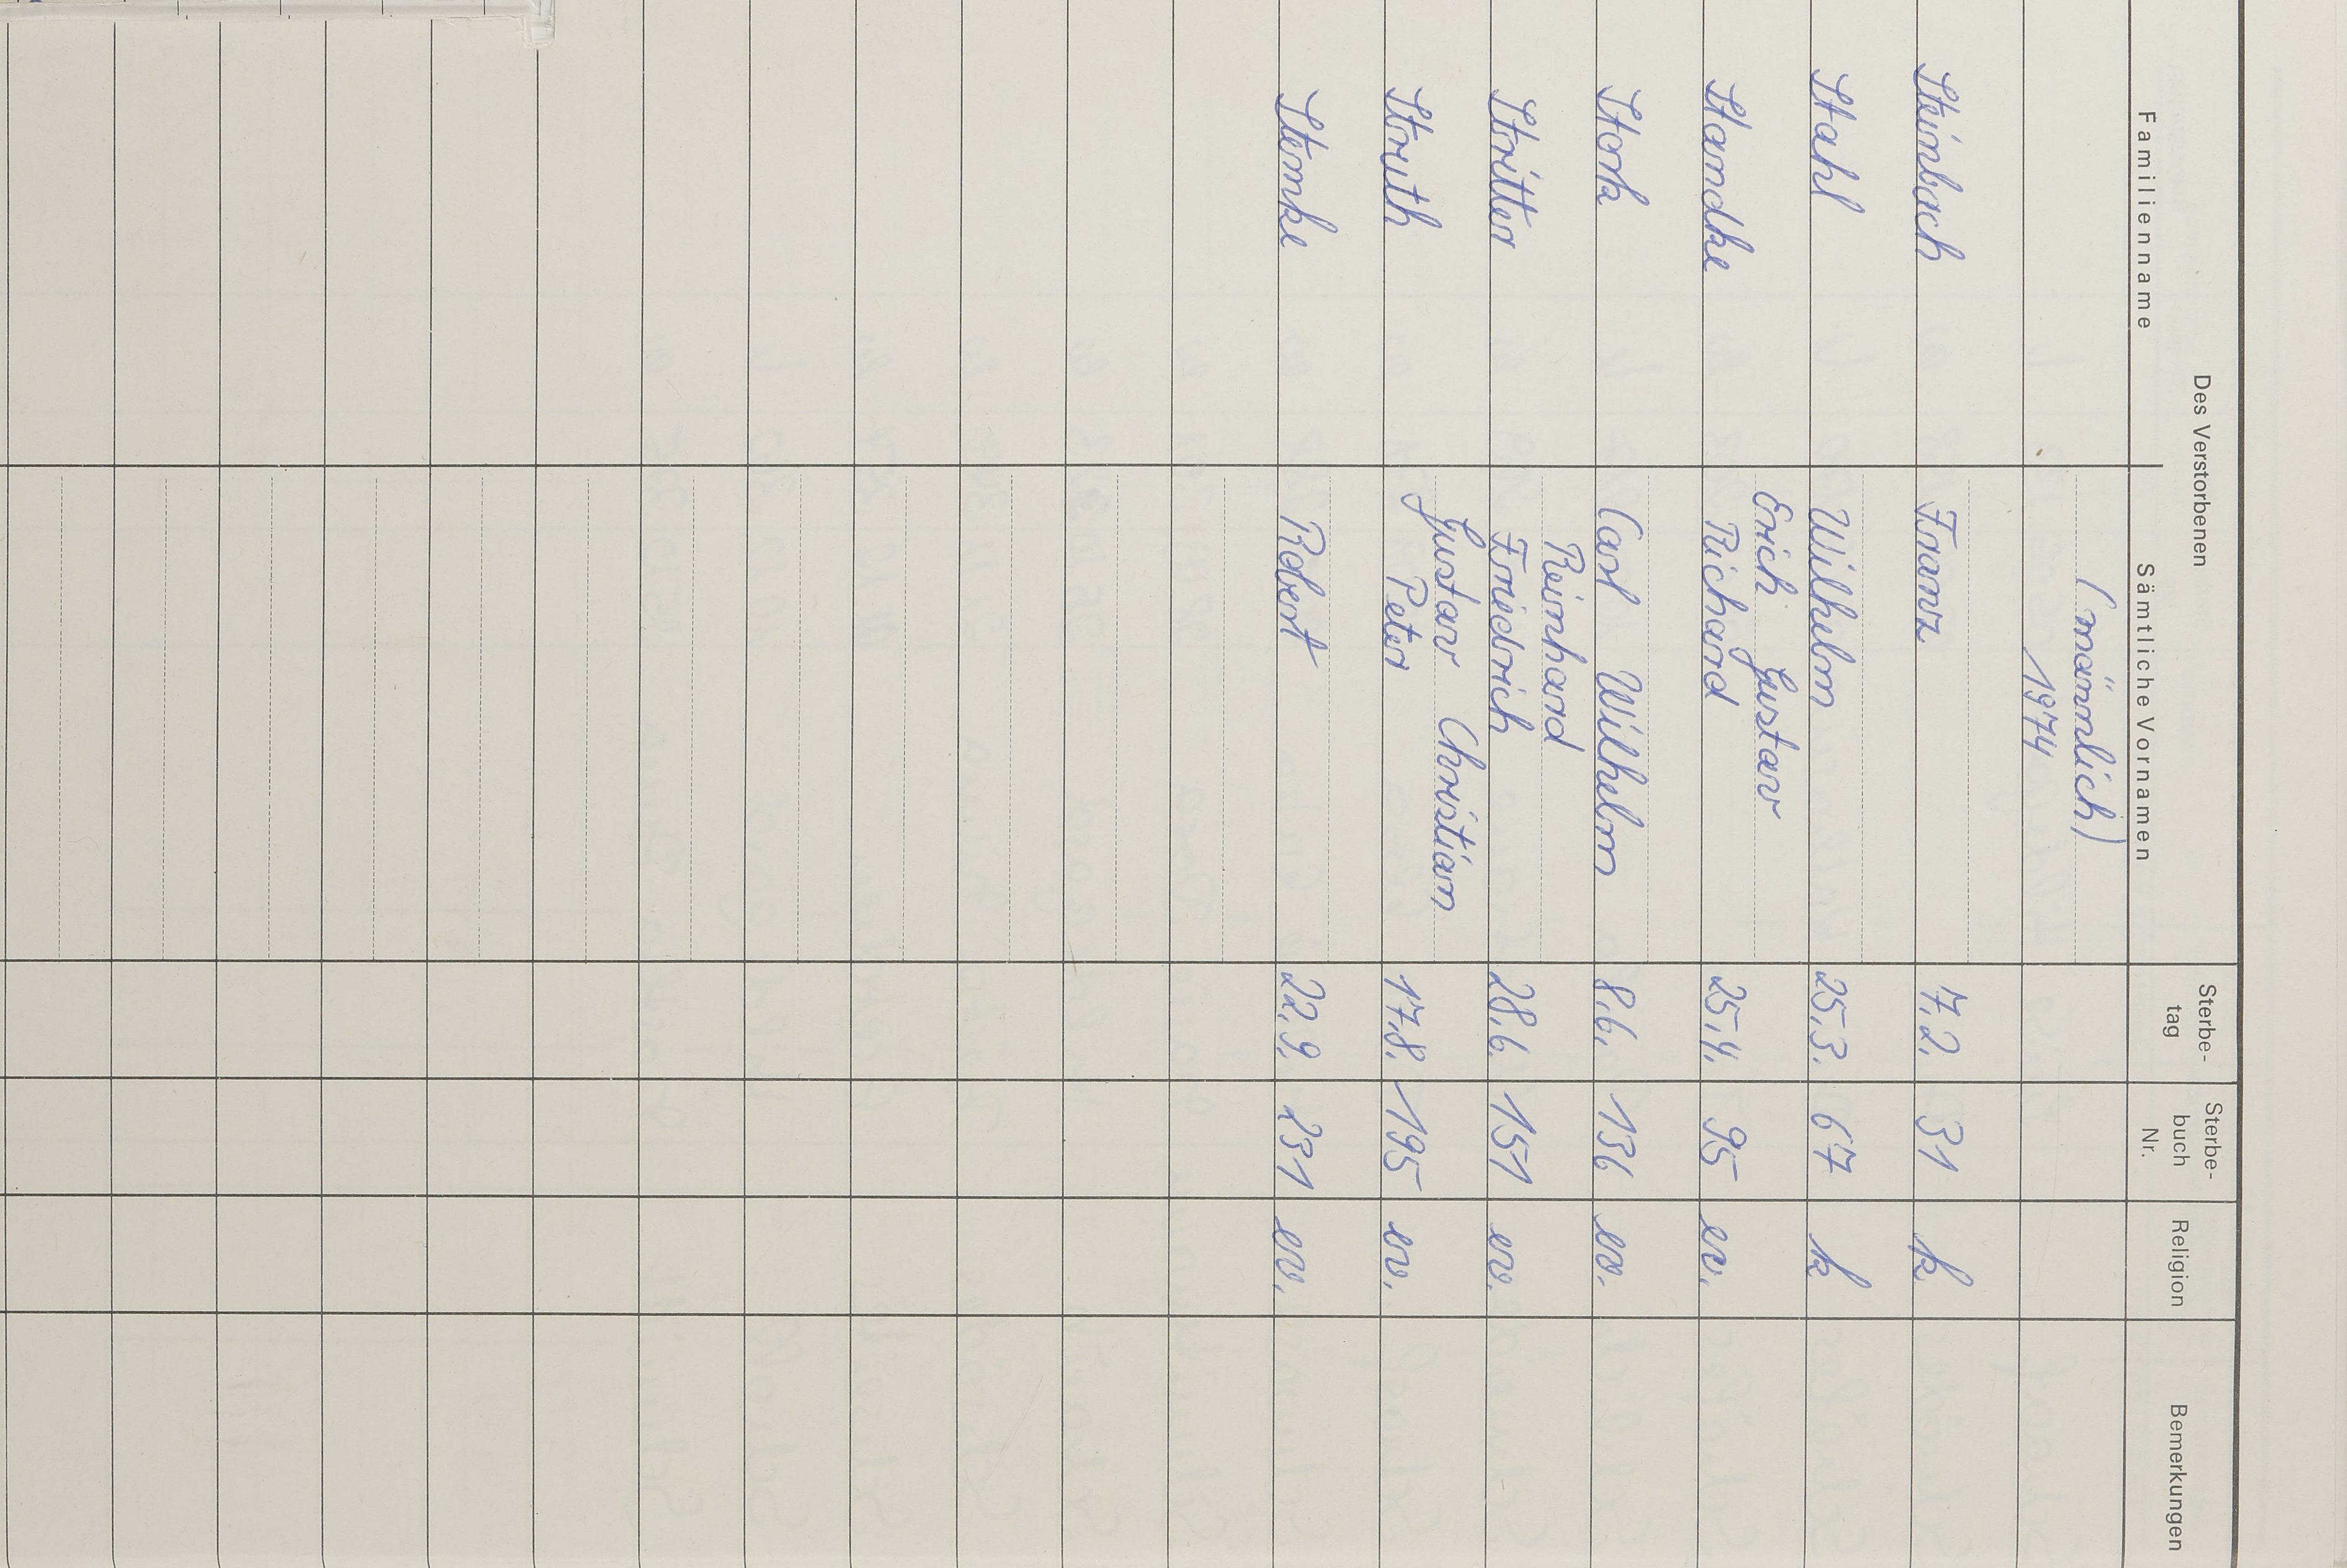 Des Verstorbenen
Familienname Sämtliche Vornamen Sterbe-tag Sterbe-buch Nr. Religion Bemerkungen
(männlich)
1974
Steinbach Franz 7.2. 31 k
Stahl Wilhelm 25.3. 67 k
Erich Gustav
Standke Richard 25.4. 95 ev.
Stork Carl Wilhelm 8.6. 136 ev.
Reinhard
Stritter Friedrich 28.6. 151 ev.
Gustav Christian
Struth Peter 17.8. 195 ev.
Stemke Robert 22.9. 231 ev.